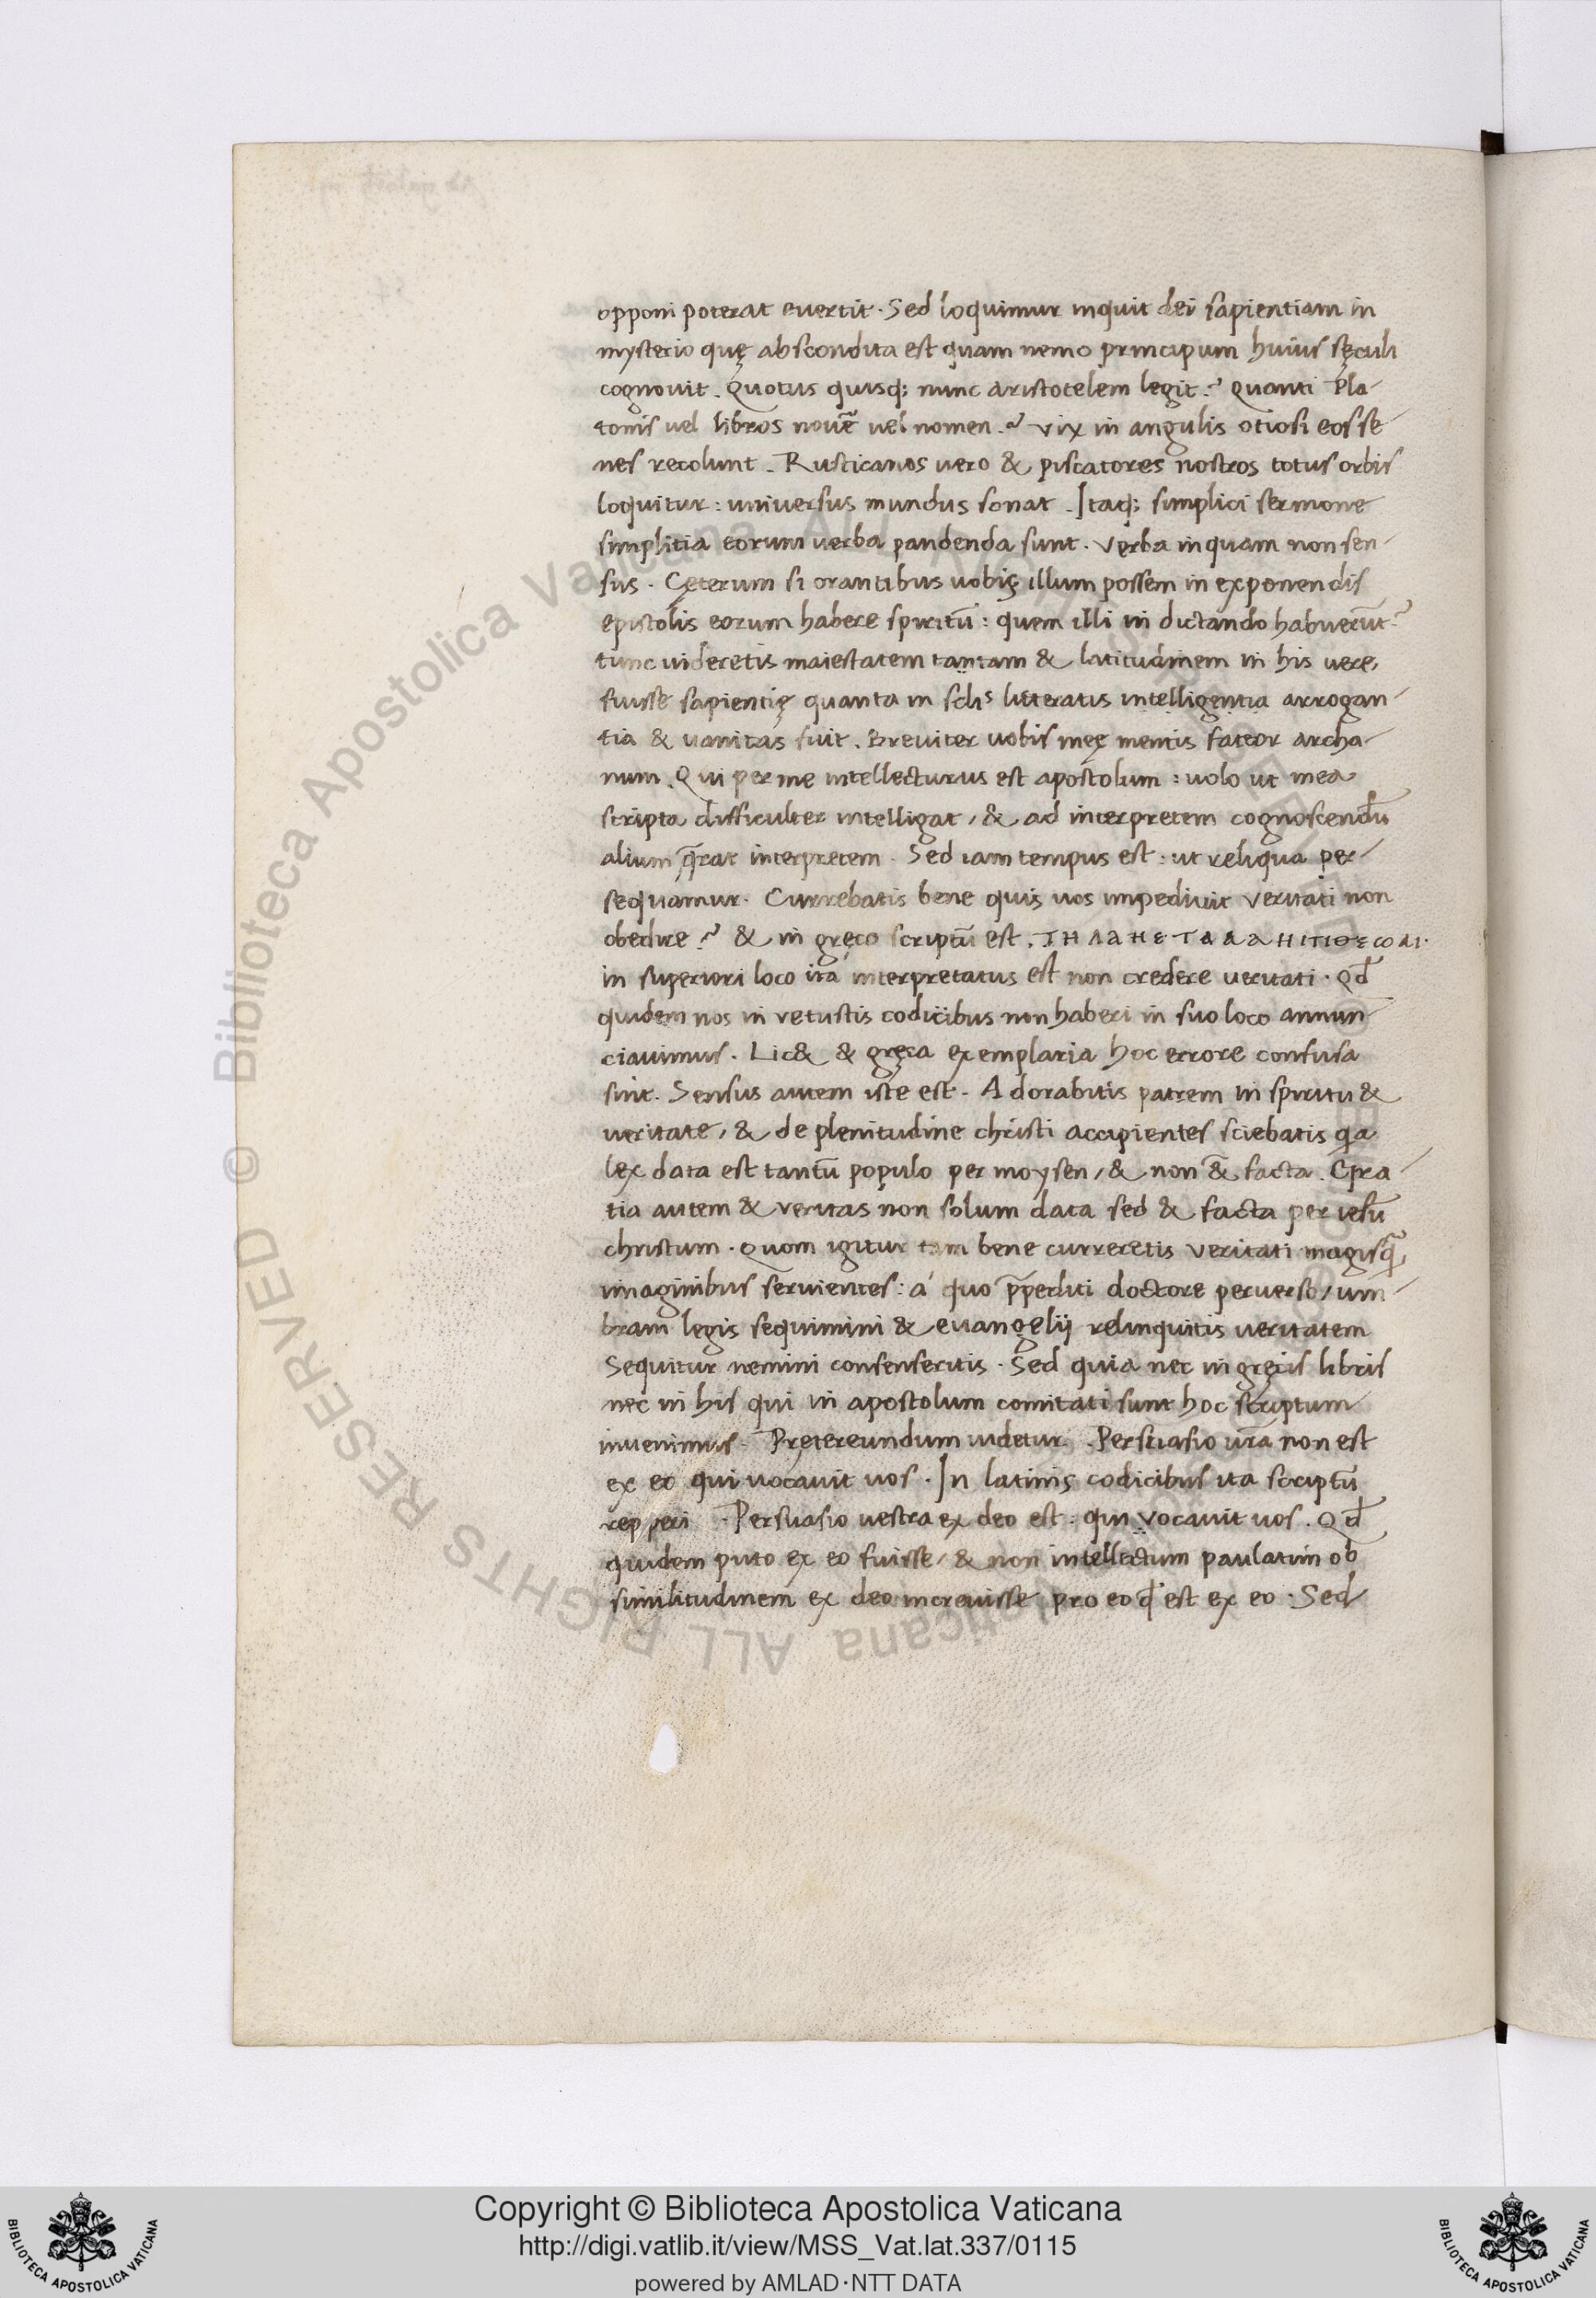 opponi poterat evertit. Sed loquimur inquit dei sapientiam in
mysterio quę abscondita est quam nemo principum huius sęculi
cognovit. Quotus quisq; nunc aristotelem legit? quanti Pla-
tonis vel libros novē vel nomen? vix in angulis otiosi eos se-
nes recolunt. Rusticanos vero & piscatores nostros totus orbis
loquitur: universus mundus sonat. Itaq; simplici sermone
simplitia eorum verba pandenda sunt. verba inquam non sen-
sus. Cęterum si orantibus vobis illum possem in exponendis
epistolis eorum habere spiritū: quem illi in dictando habuerūt?
tunc videretis maiestatem tantam & latitudinem in his vere
fuisse sapientię quanta in sclis litteratis intelligentia arrogan-
tia & vanitas fuit. Breviter vobis meę mentis fateor archa-
num. Qui per me intellecturus est apostolum: volo ut mea
scripta difficulter intelligat, & ad interpretem cognoscendū
alium q̄rat interpretem. Sed iam tempus est: ut reliqua per-
sequamur. Currebatis bene quis vos impedivit veritati non
obedire? & in gręco scriptū est. ΤΗΛΑΗΕΤΑΛΑΗΙΤΙΘΕCΟΑΙ.
in superiori loco ita interpretatus est non credere veritati. Qđ
quidem nos in vetustis codicibus non haberi in suo loco annun-
ciavimus. Lic& & gręca exemplaria hoc errore confusa
sint. Sensus autem iste est. Adorabitis patrem in spiritu &
veritate, & de plenitudine christi accipientes sciebatis qa
lex data est tantū populo per moysen, & non &̄ facta. Gra-
tia autem & veritas non solum data sed & facta per iesū
christum. Quom igitur tam bene curreretis veritati magisq̄
imaginibus servientes: á quo p̄pediti doctore perverso, um-
bram legis sequimini & evangelij relinquitis veritatem
Sequitur nemini consenseritis. Sed quia nec in gręcis libris
nec in his qui in apostolum comitati sunt hoc scriptum
invenimus. Pretereundum videtur. Persuasio vr̄a non est
ex eo qui vocavit vos. In latinis codicibus ita scriptū
repperi. Persuasio vestra ex deo est: qui vocavit vos. Qđ
quidem puto ex eo fuisse, & non intellectum paulatim ob
similitudinem ex deo increvisse pro eo qđ est ex eo. Sed
© Biblioteca Apostolica Vaticana ALL RIGHTS RESERVED
Copyright © Biblioteca Apostolica Vaticana
http://digi.vatlib.it/view/MSS_Vat.lat.337/0115
powered by AMLAD·NTT DATA
BIBLIOTECA APOSTOLICA VATICANA
BIBLIOTECA APOSTOLICA VATICANA